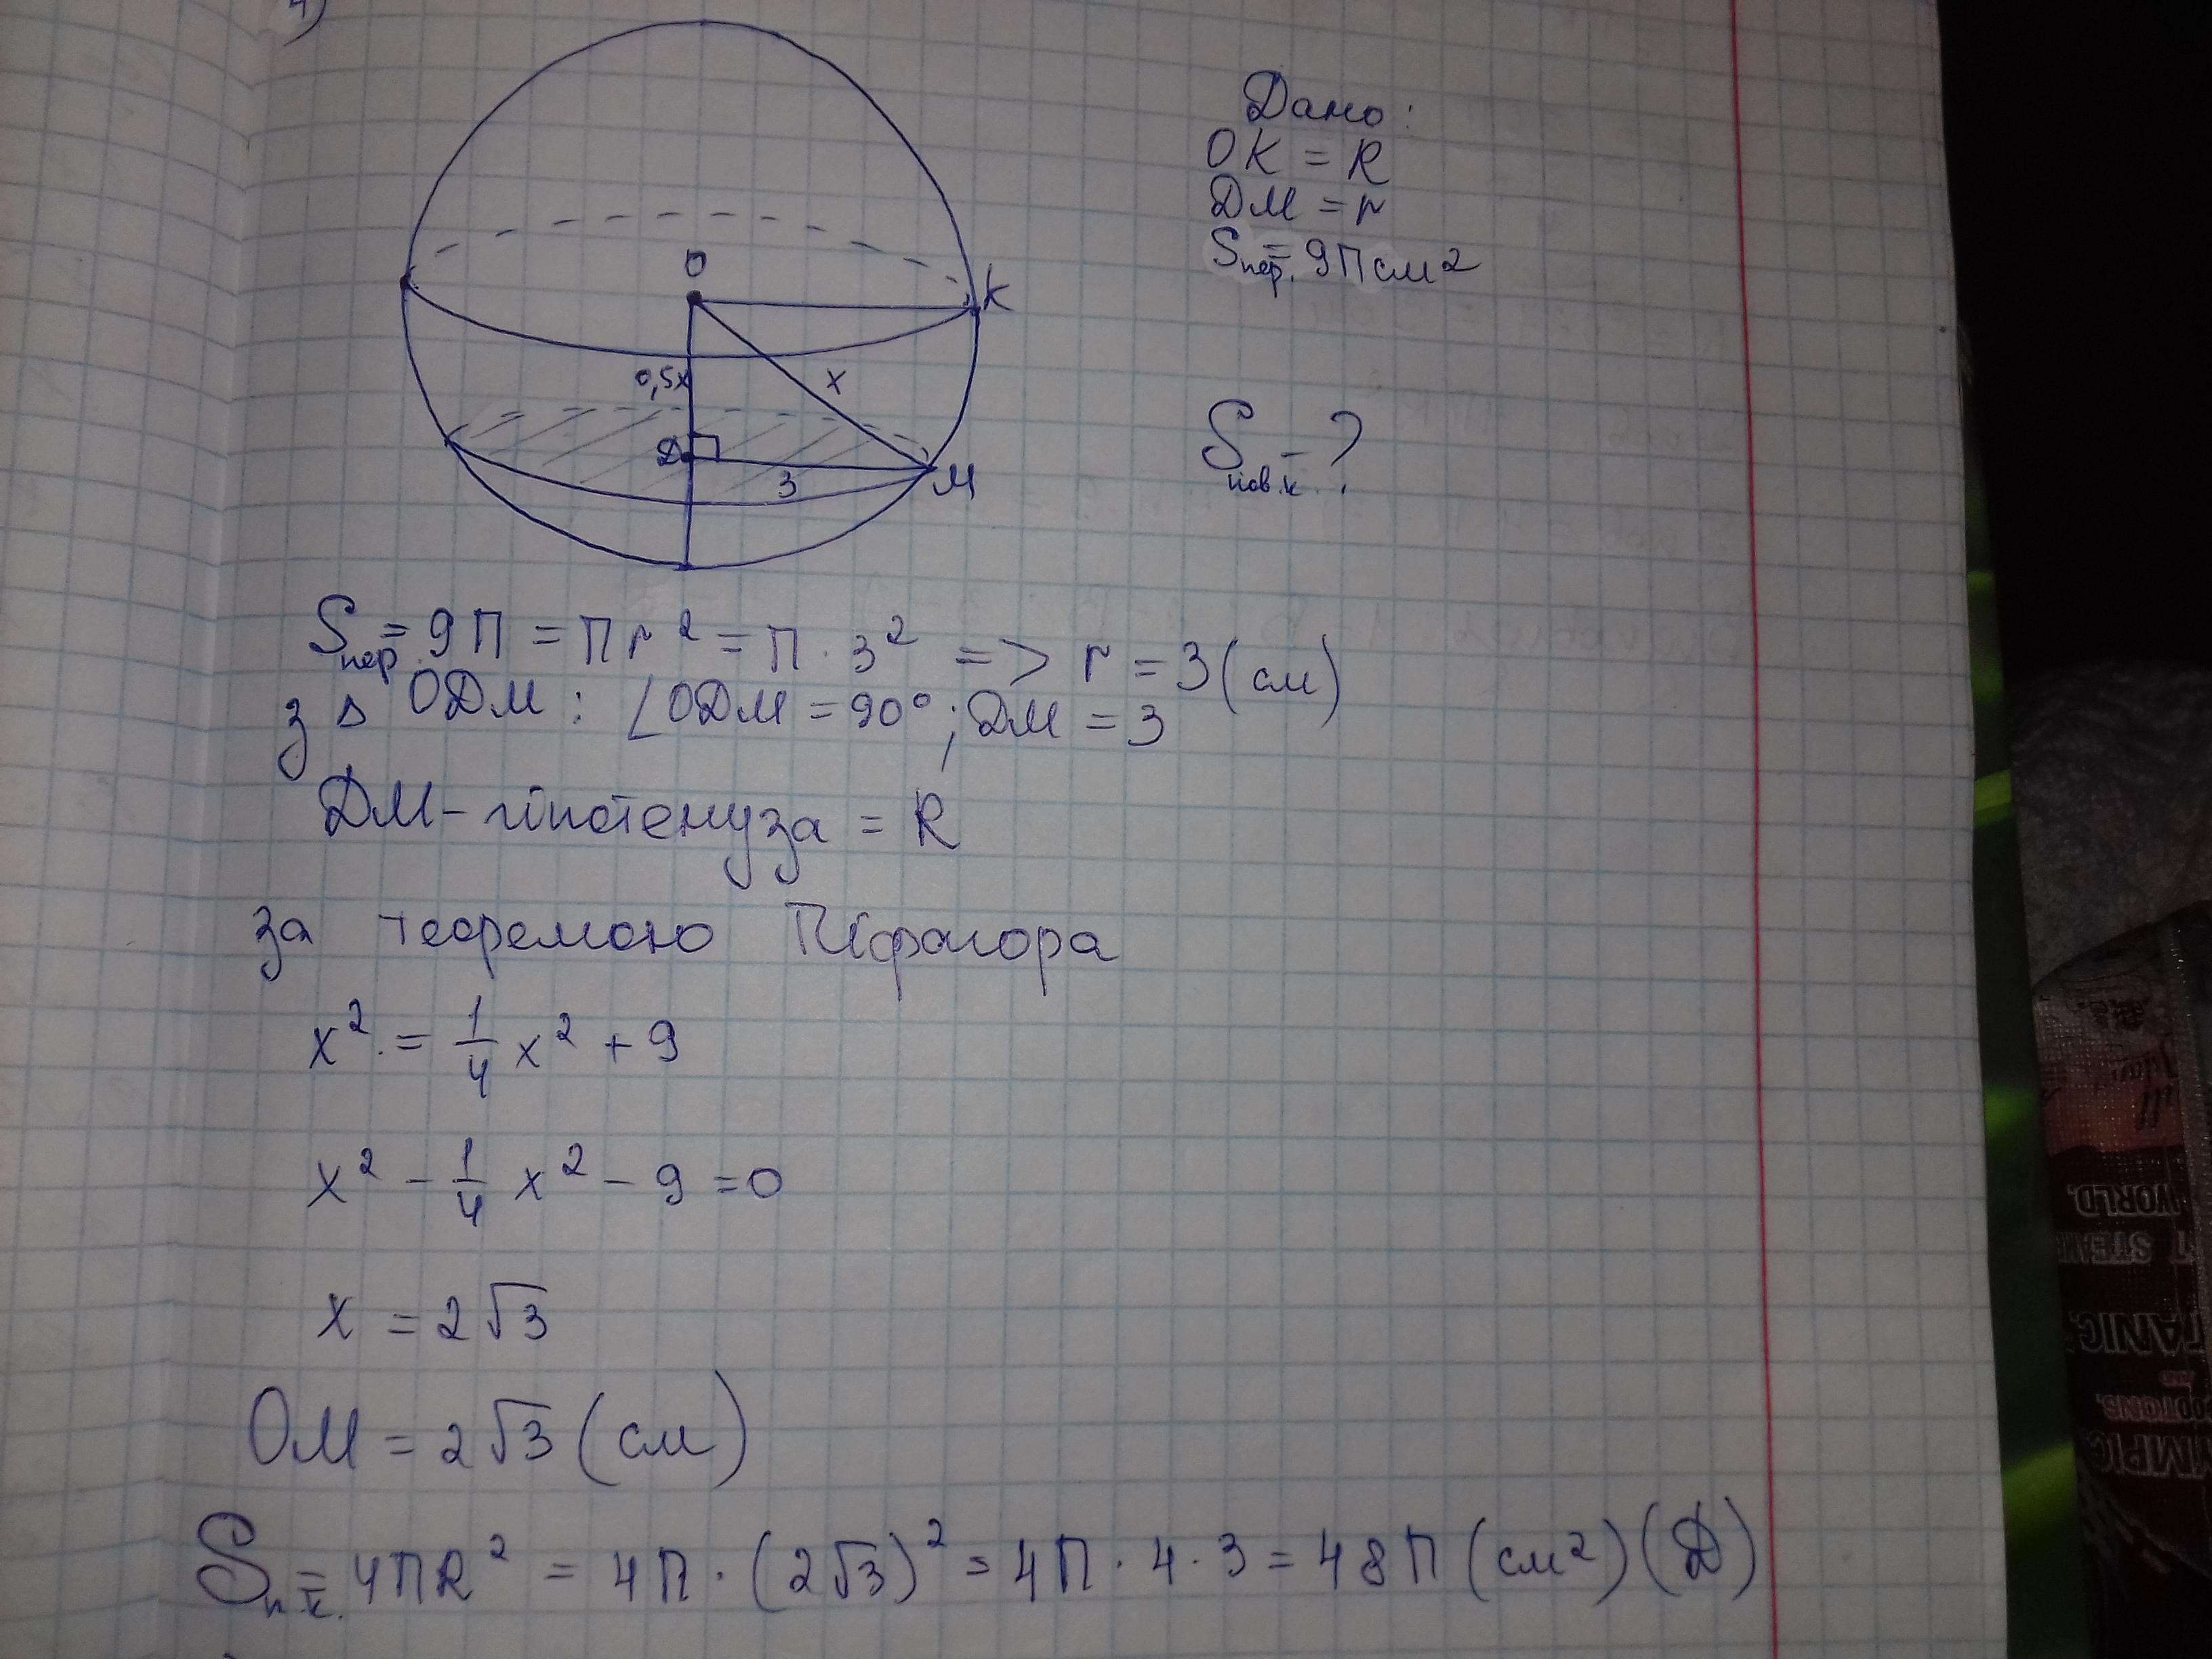 4)
O
K
0,5x
x
Д
3
М
Дано:
OK = R
ДМ = r
Sпер. = 9П см2
Sпов.к. - ?
Sпер. = 9П = Пr² = П · 3² => r = 3 (см)
з △ ОДМ : ∠ОДМ = 90° ; ДМ = 3
ДМ - гіпотенуза = R
за теоремою Піфагора
x² = 1/4 x² + 9
x² - 1/4 x² - 9 = 0
x = 2√3
ОМ = 2√3 (см)
Sп.к. = 4ПR² = 4П · (2√3)² = 4П · 4 · 3 = 48П (см²) (Д)
WORLD.